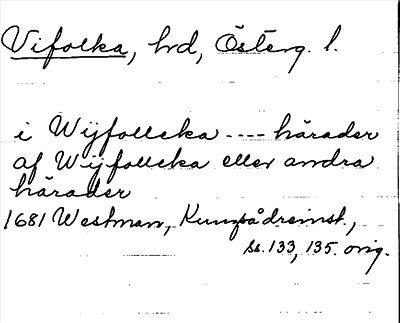 Vifolka, hrd, Österg. l.
i Wijfollcka ---- härader
af Wijfollcka eller andra
härader
1681 Westman, Kungsådreinst.,
ss. 133, 135. orig.